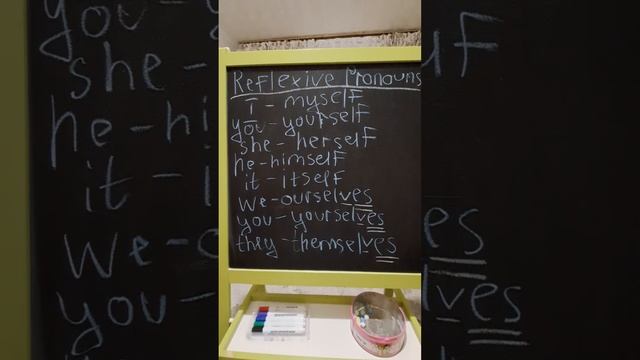 Reflexive Pronouns
I - myself
you - yourself
she - herself
he - himself
it - itself
We - ourselves
you - yourselves
they - themselves